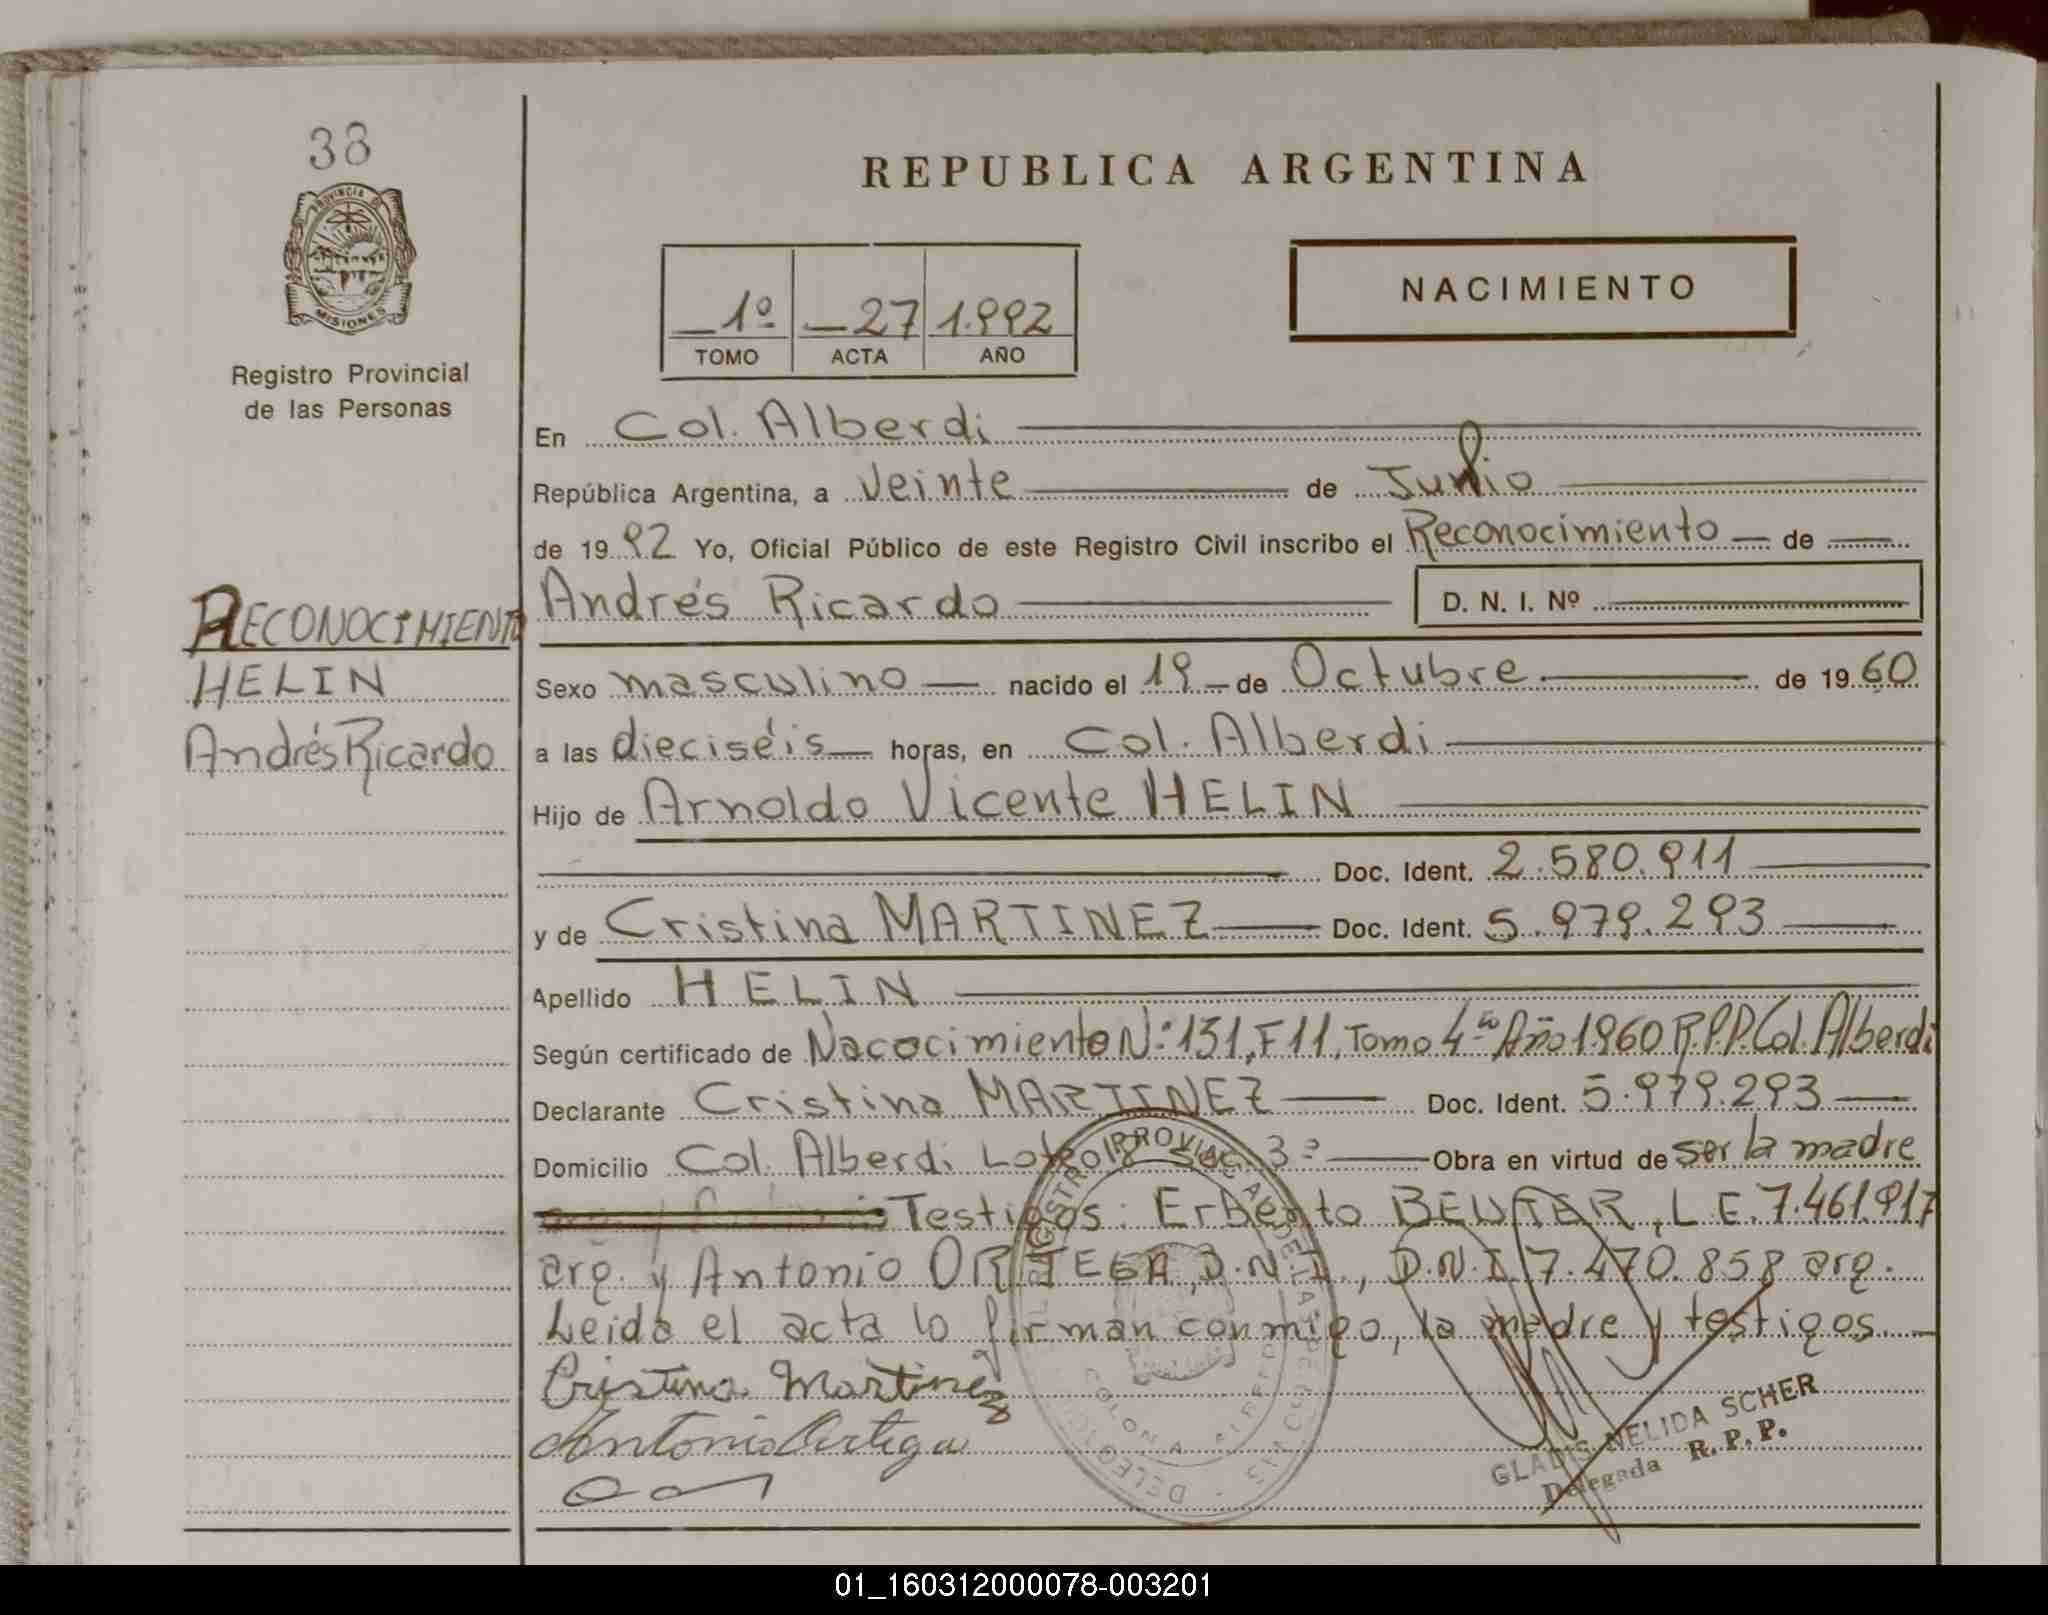 38
PROVINCIA DE
MISIONES
Registro Provincial
de las Personas
REPUBLICA ARGENTINA
1º 27 1.992
TOMO ACTA AÑO
NACIMIENTO
En Col. Alberdi
República Argentina, a Veinte de
de 1992 Yo, Oficial Público de este Registro Civil inscribo el Reconocimiento de
Andrés Ricardo D. N. I. Nº
RECONOCIMIENTO
HELIN
Andrés Ricardo
Sexo masculino nacido el 19 de Octubre de 1960
a las dieciséis horas, en Col. Alberdi
Hijo de Arnoldo Vicente HELIN
Doc. Ident. 2.580.911
y de Cristina MARTINEZ Doc. Ident. 5.979.293
Apellido HELIN
Según certificado de Nacocimiento Nº 131, F 11, Tomo 4to Año 1960 R.P.P. Col. Alberdi
Declarante Cristina MARTINEZ Doc. Ident. 5.979.293
Domicilio Col. Alberdi Lote 18 Sec. 3ª Obra en virtud de ser la madre
Testigos: Erberto L.E. 7.461.917
arg. y Antonio ORTEGA, D.N.I., D.N.I. 7.470.858 arg.
Leida el acta lo firman conmigo, la madre y testigos.
Cristina Martinez
Antonio Ortega
GLADIS NELIDA SCHER
Delegada R. P. P.
01_160312000078-003201